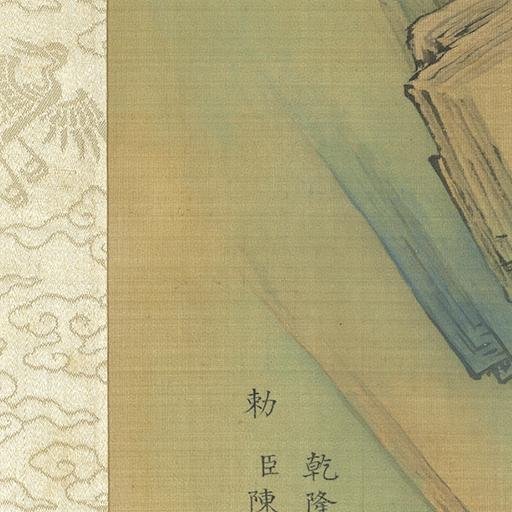 乾隆
勅
臣陳